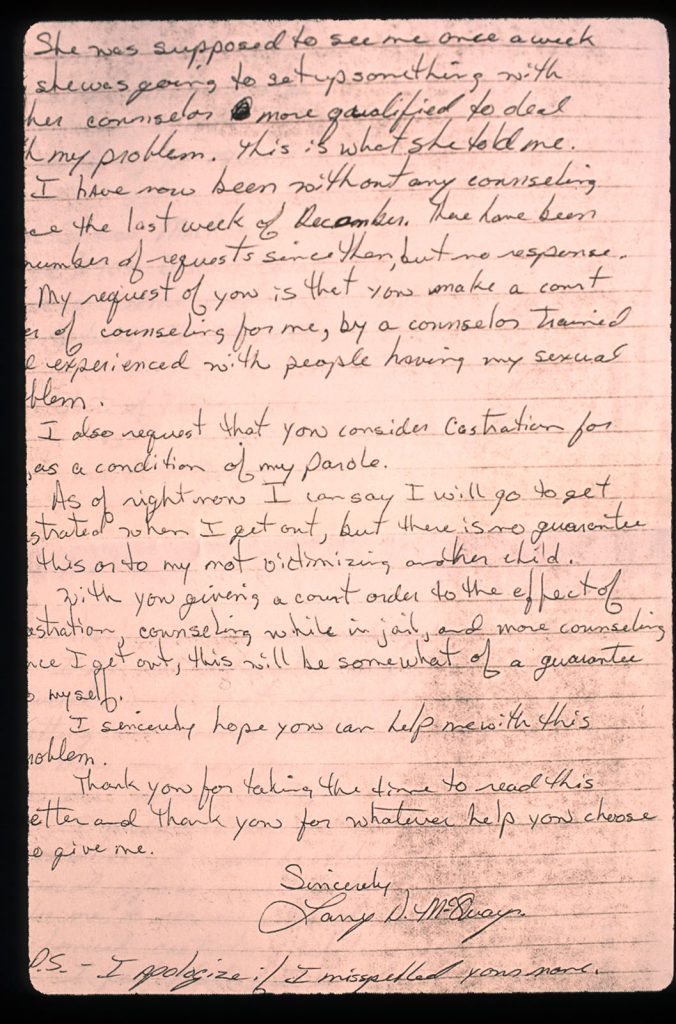 She was supposed to see me once a week
she was going to set up something with
her counselor more qualified to deal
h my problem. This is what she told me.
I have now been without any counseling
ce the last week of December. There have been
number of requests since then, but no response.
My request of you is that you make a court
er of counseling for me, by a counselor trained
experienced with people having my sexual
blem.
I also request that you consider Castration for
as a condition of my parole.
As of right now I can say I will go to get
strated when I get out, but there is no guarantee
this or to my not victimizing another child.
With you giving a court order to the effect of
astration, counseling while in jail, and more counseling
nce I get out, this will be somewhat of a guarantee
o myself.
I sincerely hope you can help me with this
roblem.
Thank you for taking the time to read this
etter and thank you for whatever help you choose
o give me.
Sincerely,
Larry D. McQuay
P.S. - I apologize if I misspelled your name.